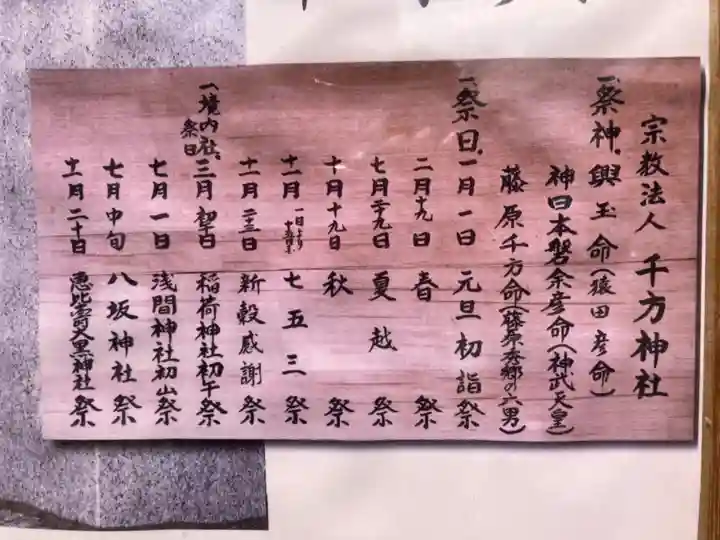 宗教法人 千方神社
一、祭神、興玉命(猿田彦命)
神日本磐余彦命(神武天皇)
藤原千方命(藤原秀郷の六男)
一、祭日、一月一日 元旦初詣祭
二月十九日 春祭
七月廿九日 夏越祭
十月十九日 秋祭
十一月 一日より 七五三祭
十一月二十三日 新穀感謝祭
一、境内社、祭日
三月初午日 稲荷神社初午祭
七月一日 浅間神社初山祭
七月中旬 八坂神社祭
十一月二十日 恵比寿大黒神社祭